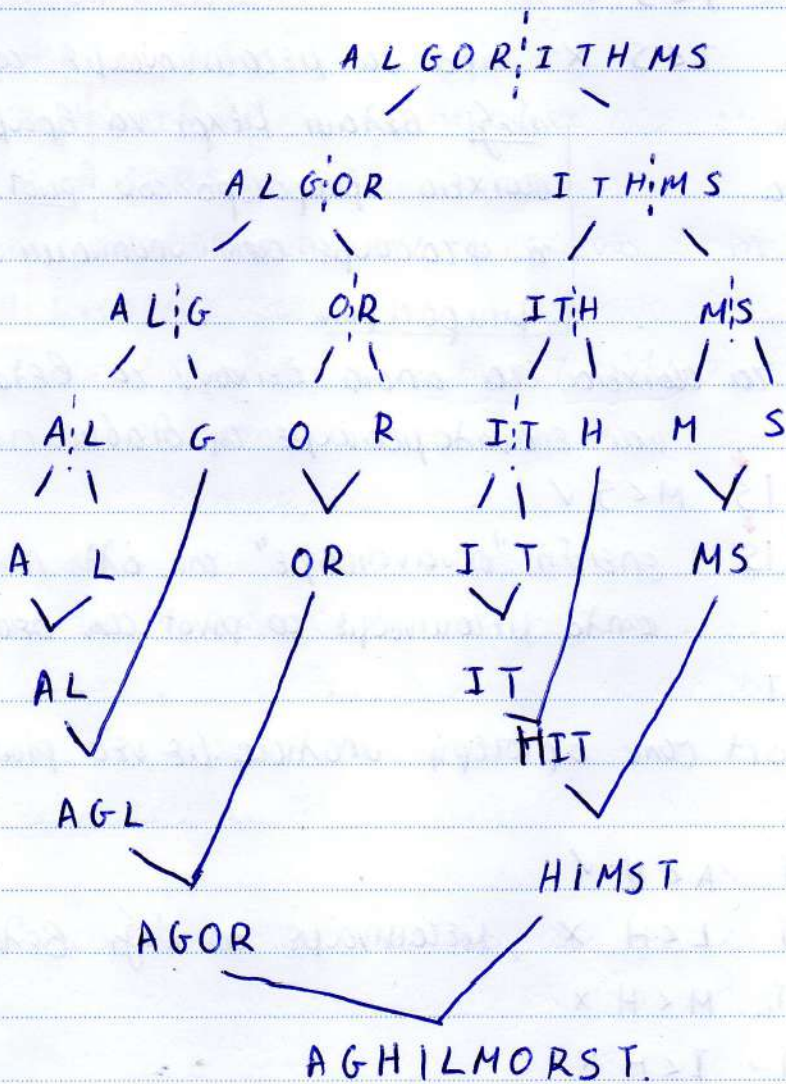 ALGOR ITHMS
ALG OR ITH MS
AL G O R IT H M S
A L G O R I T H M S
A L OR I T MS
AL IT
HIT
AGL
HIMST
AGOR
AGHILMORST.